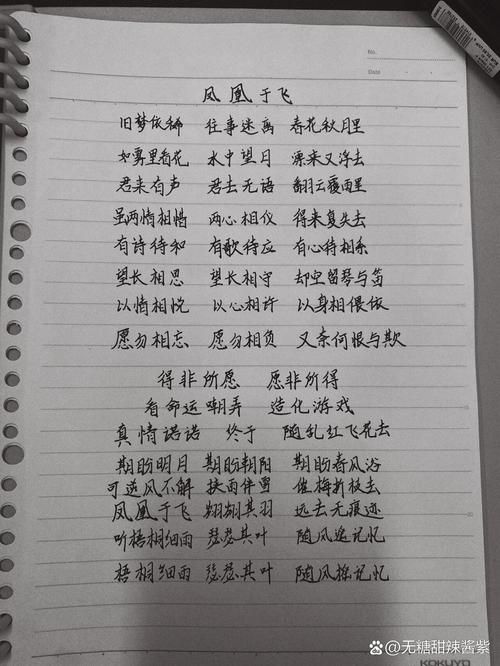 No.
Date
凤凰于飞
旧梦依稀 往事迷离 春花秋月里
如雾里看花 水中望月 漂来又浮去
君来有声 君去无语 翻云覆雨里
虽两情相惜 两心相仪 得来复失去
有诗待和 有歌待应 有心待相系
望长相思 望长相守 却空留琴与笛
以情相悦 以心相许 以身相偎依
愿勿相忘 愿勿相负 又奈何恨与欺
得非所愿 愿非所得
看命运嘲弄 造化游戏
真情诺诺 终于 随乱红飞花去
期盼明月 期盼朝阳 期盼春风浴
可逆风不解 挟雨伴雪 催梅折枝去
凤凰于飞 翙翙其羽 远去无痕迹
听梧桐细雨 瑟瑟其叶 随风追记忆
梧桐细雨 瑟瑟其叶 随风摇记忆
@无糖甜辣酱紫
KOKUYO